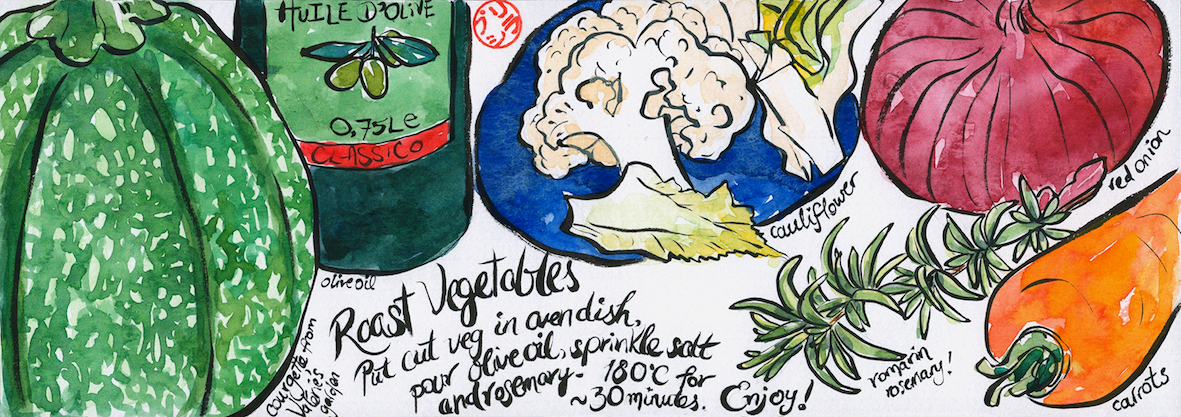 HUILE D'OLIVE
0,75Le
CLASSICO
olive oil
cauliflower
red onion
Roast Vegetables
Put cut veg in oven dish,
pour olive oil, sprinkle salt
and rosemary - 180°C for
~30 minutes. Enjoy!
courgette from
Valerie's
garden
romarin
rosemary!
carrots